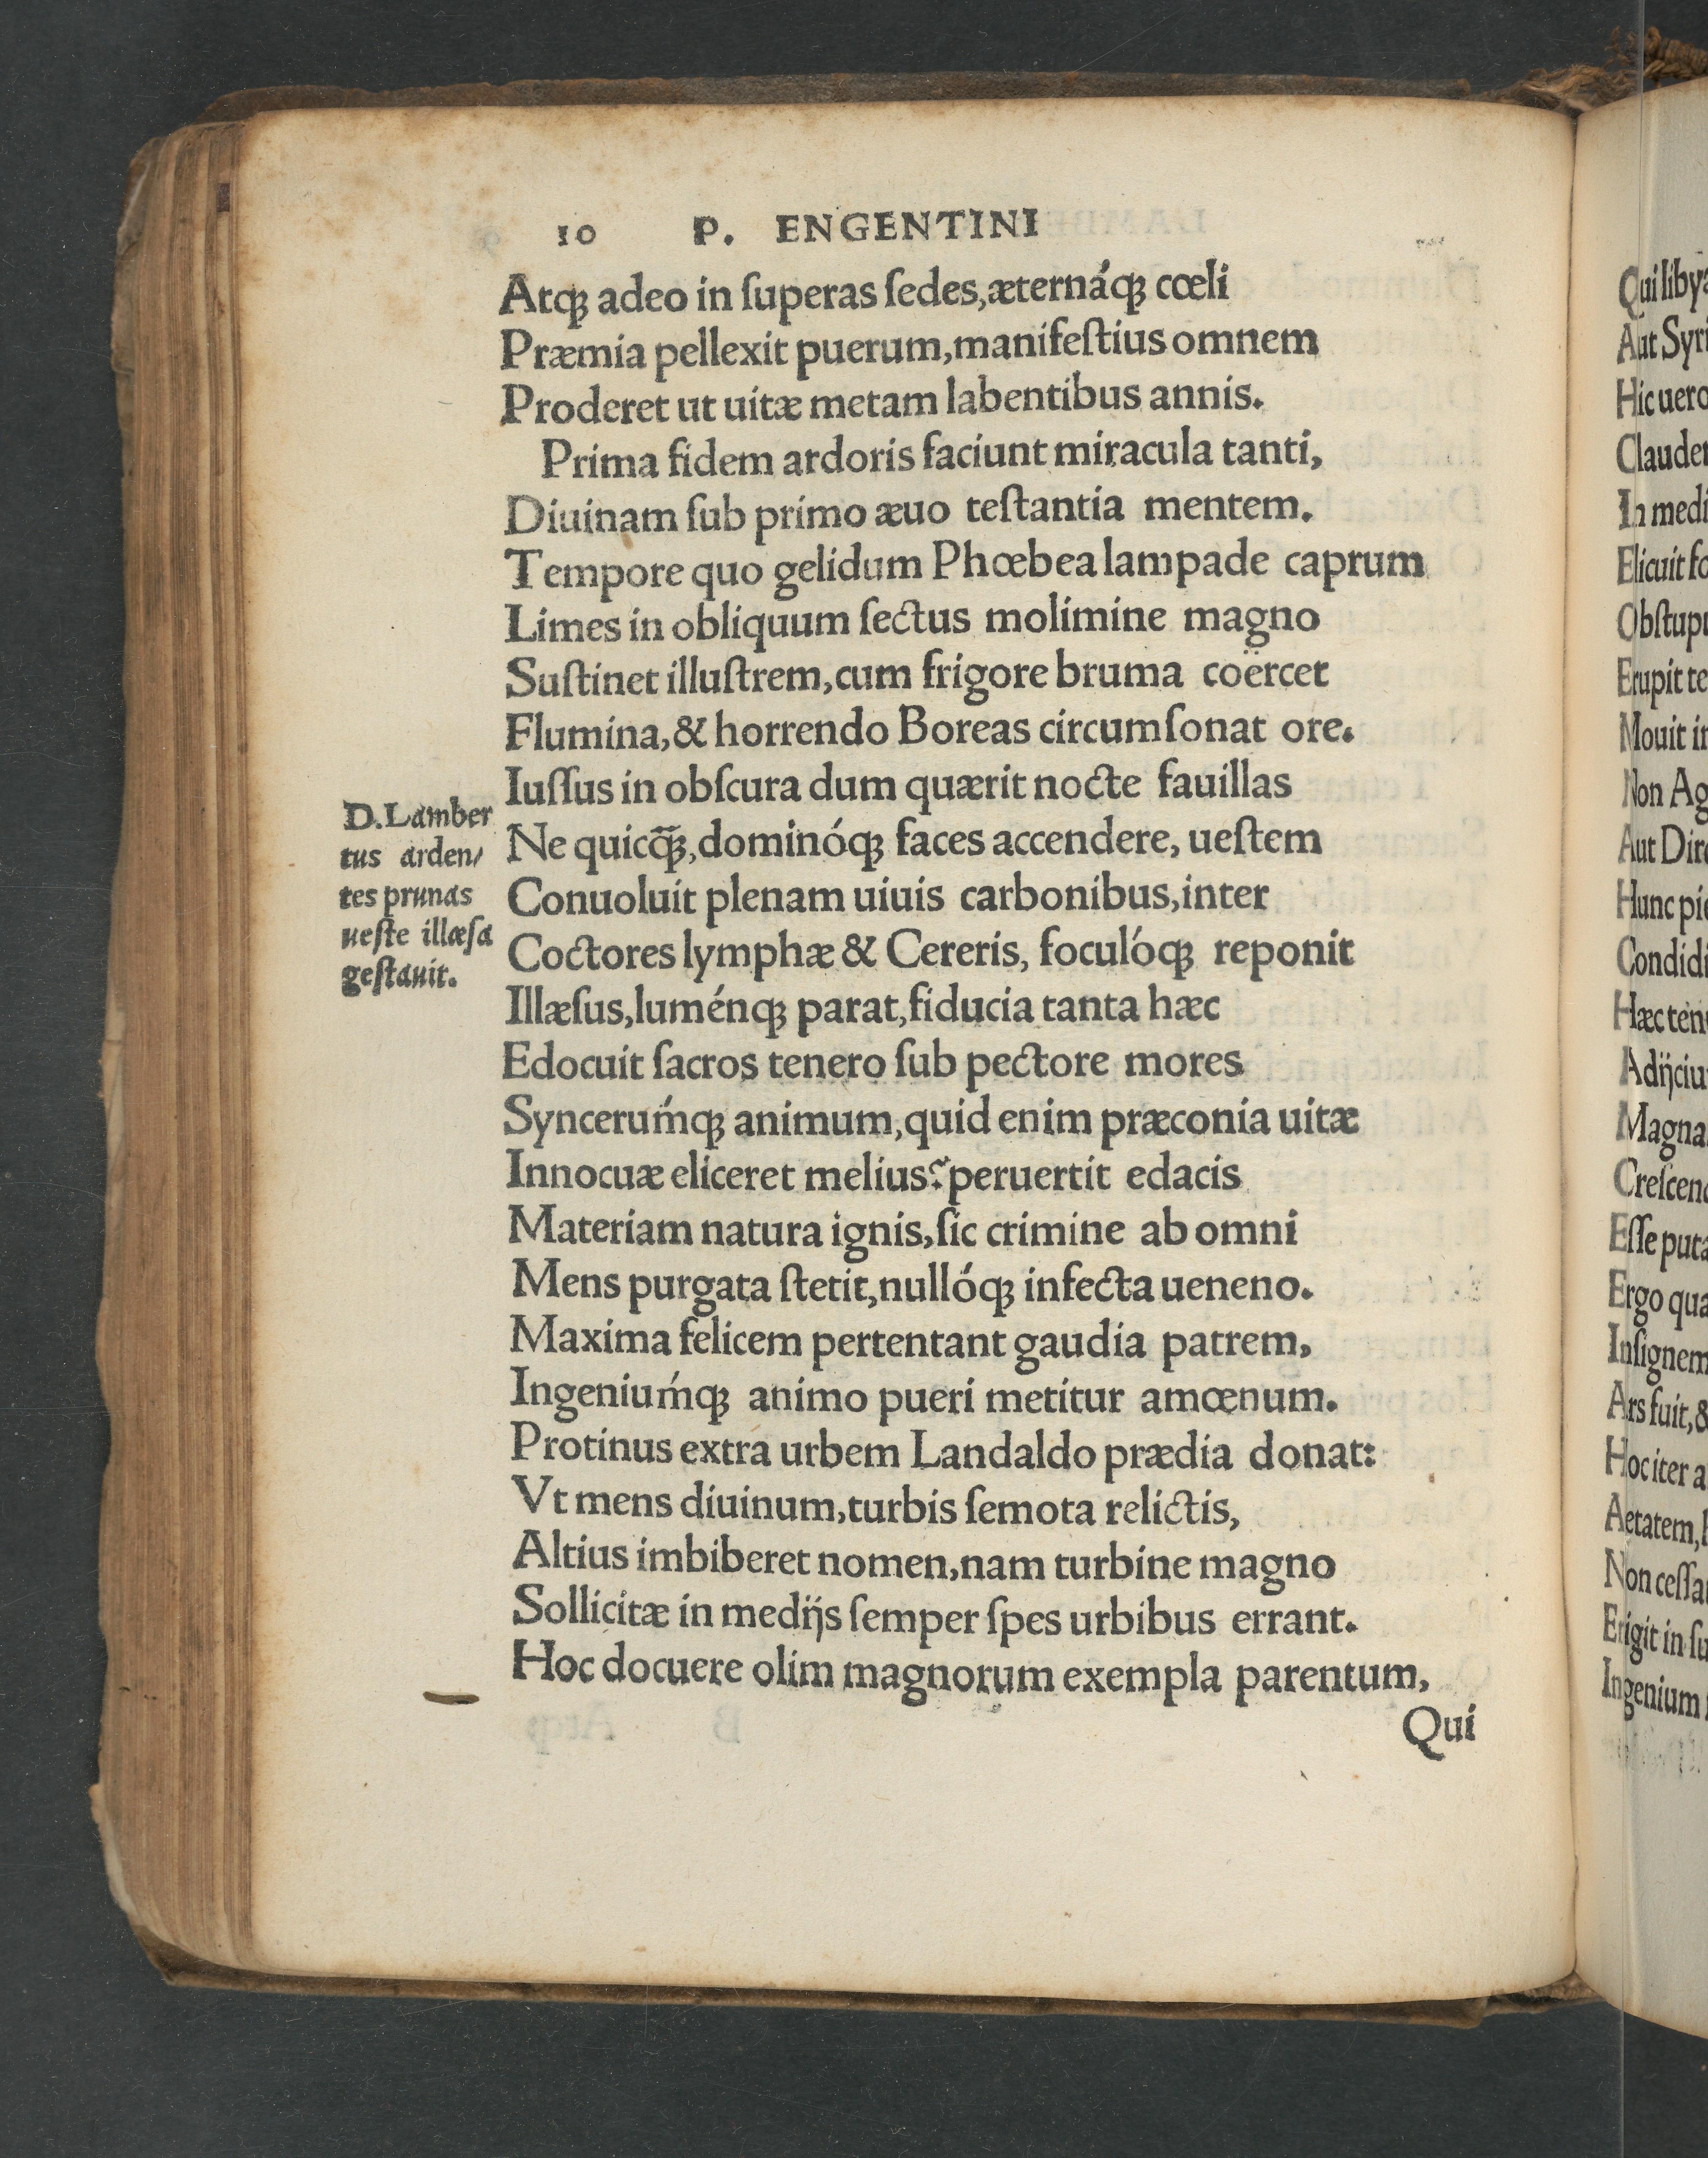 10 P. ENGENTINI
Atqꝫ adeo in ſuperas ſedes,æternáqꝫ cœli
Præmia pellexit puerum,manifeſtius omnem
Proderet ut uitæ metam labentibus annis.
Prima fidem ardoris faciunt miracula tanti,
Diuinam ſub primo æuo teſtantia mentem.
Tempore quo gelidum Phœbea lampade caprum
Limes in obliquum ſectus molimine magno
Suſtinet illuſtrem,cum frigore bruma coërcet
Flumina,& horrendo Boreas circumſonat ore.
Iuſſus in obſcura dum quærit nocte fauillas
Ne quicq̃ꝫ,dominóqꝫ faces accendere, ueſtem
Conuoluit plenam uiuis carbonibus,inter
Coctores lymphæ & Cereris, foculóqꝫ reponit
Illæſus,luménqꝫ parat,fiducia tanta hæc
Edocuit ſacros tenero ſub pectore mores
Synceruḿqꝫ animum,quid enim præconia uitæ
Innocuæ eliceret melius? peruertit edacis
Materiam natura ignis,ſic crimine ab omni
Mens purgata ſtetit,nullóqꝫ infecta ueneno.
Maxima felicem pertentant gaudia patrem,
Ingeniuḿqꝫ animo pueri metitur amœnum.
Protinus extra urbem Landaldo prædia donat:
Vt mens diuinum,turbis ſemota relictis,
Altius imbiberet nomen,nam turbine magno
Sollicitæ in medijs ſemper ſpes urbibus errant.
Hoc docuere olim magnorum exempla parentum,
Qui
D.Lamber
tus arden/
tes prunas
ueſte illæſa
geſtauit.
Qui
Aut Syri
Hic uero
In medi
Elicuit
Obſtup
Erupit
Mouit
Non Ag
Aut
Hunc
Condidi
Hæc
Adijciu
Magna
Creſcen
Eſſe
Ergo
Inſignem
Ars fuit,
Hoc iter
Aetatem,
Non ceſſa
Erigit in
Ingenium